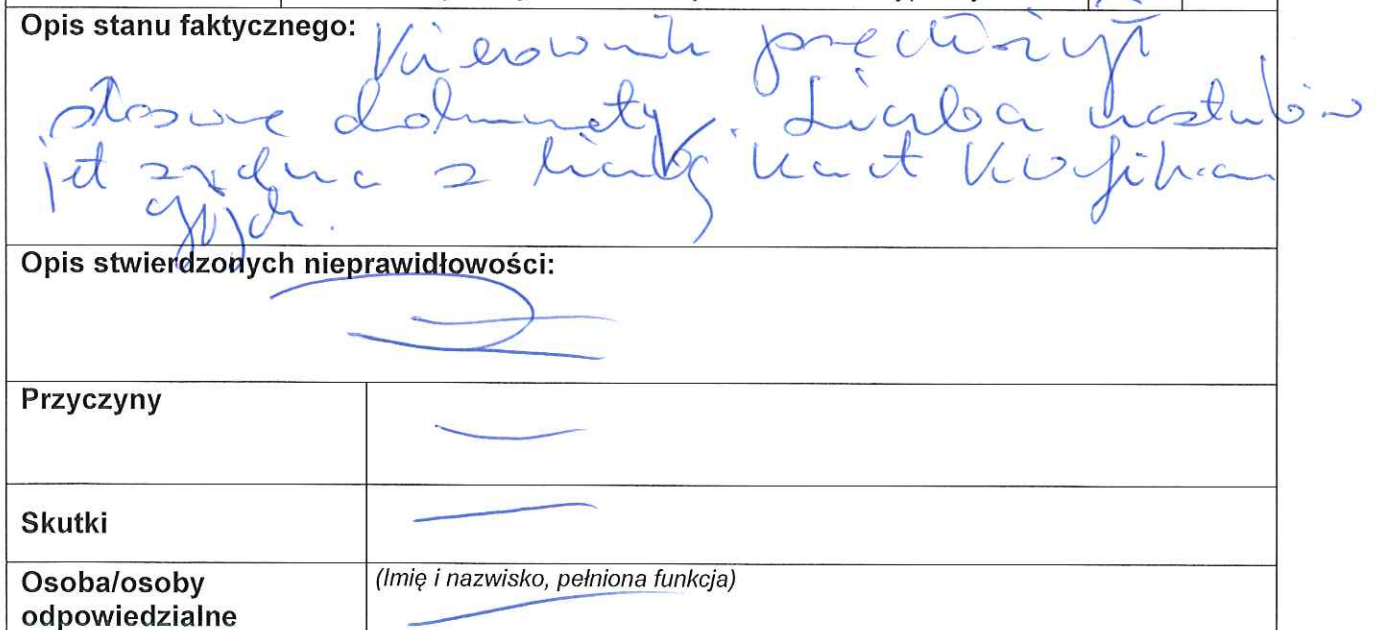 Opis stanu faktycznego: Kierownik przedłożył
stosowne dokumenty. Liczba
jest zgodna z liczbą kart
Opis stwierdzonych nieprawidłowości:
Przyczyny
Skutki
Osoba/osoby
odpowiedzialne
(Imię i nazwisko, pełniona funkcja)